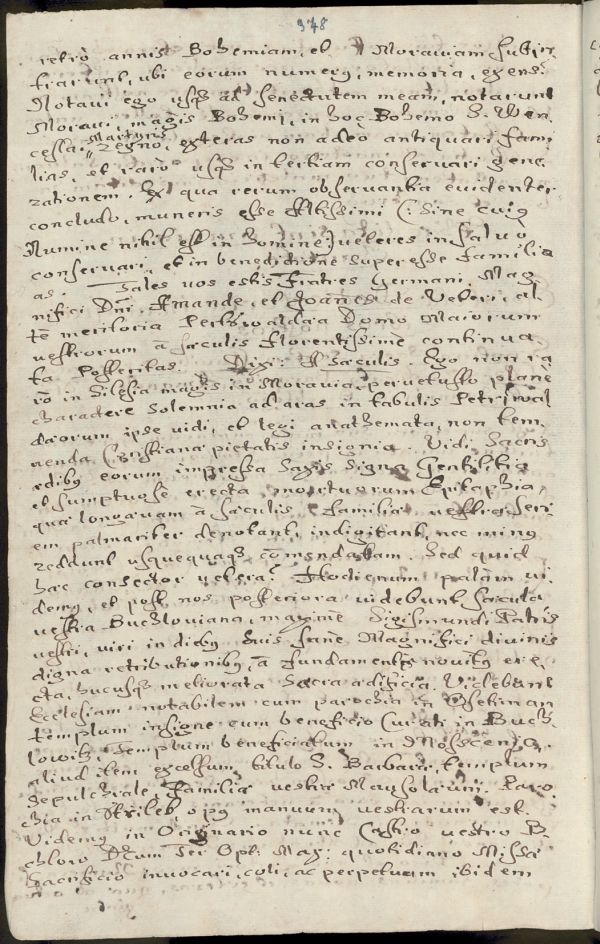 378
retrò annis Bohemiam, et Moraviam subin
trarunt, ubi eorum numerus, memoria, et gens?
Notavi ego usq ad senectutem meam, notarunt
Moravi magis Bohemi, in hoc Bohemo S. Wen
ceslai Martyris Regno, exteras non adeo antiquari fami
lias, et rarò usq in tertiam conservari gene
rationem. Ex qua rerum observantia evidenter
concludo, muneris esse Altissimi (: Sine cuiq
Numine nihil est in homine:) veteres in salvo
conservari, et in benedictione superesse familia
as. Tales vos estis Fratres Germani, Mag
nifici Dni, Amande, et Joannes de Veteri, al
tè meritoria Pertswaldara Domo Maiorum
vestrorum à saeculis florentissimè continua
ta Posteritas. Dixi: A saeculis. Ego non ra
rò in Silesia magis in Moravia, pervetusto planè
charactere Solemnia ad aras in tabulis Petriwal
daeorum ipse vidi, et legi anathemata, non tem
nenda Christianae pietatis insignia. Vidi Sacris
aedibq eorum impressa Saxis Signa Gentilitia
et sumptuosè erecta mortuorum Epitaphia,
quae longaevam à saeculis Familiae vestrae seri
em palmariter denotant, indigitant, nec minq
reddunt usquequaq comendatam. Sed quid
haec consector vetera? Hodiernum palàm vi
demq, et post nos posteriora videbunt saecula
vestra Buchloviana, maximè Sigismundi Patris
vestri, viri in diebq suis sanè Magnifici divinis
digna retributionibq, à fundamentis novitèr ere
cta, hucusq meliorata Sacra aedificia. Videbunt
Ecclesiam notabilem cum parochia in Ossetiman
templum insigne cum beneficio Curati in Buch
lowitz, Templum beneficiatum in Moscienitz,
aliud item excelsum titulo S. Barbarae, templum
Sepulchrale, Familiae vestrae Mausolaeum. Paro
chia in Strileb, opq manuum vestrarum est.
Videmq in Originario nunc Castro vestro B
chlovo Deum Ter Opt: Max: quotidiano Missae
Sacrificio invocari, coli, ac perpetuam ibidem